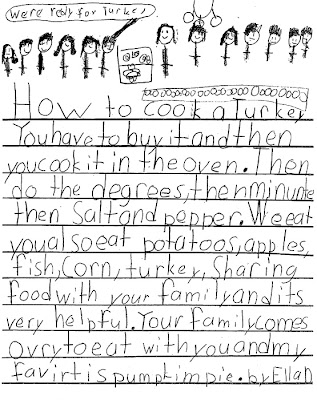 We're redy for Turkey
How to cook a Turkey
You have to buy it and then
you cook it in the oven. Then
do the degrees, then minunte
then Salt and pepper. We eat
you also eat potatoos, apples,
fish, Corn, turkey, Sharing
food with your family and its
very helpful. Your family comes
ovry to eat with you and my
favirt is pumpkim pie. by Ella D